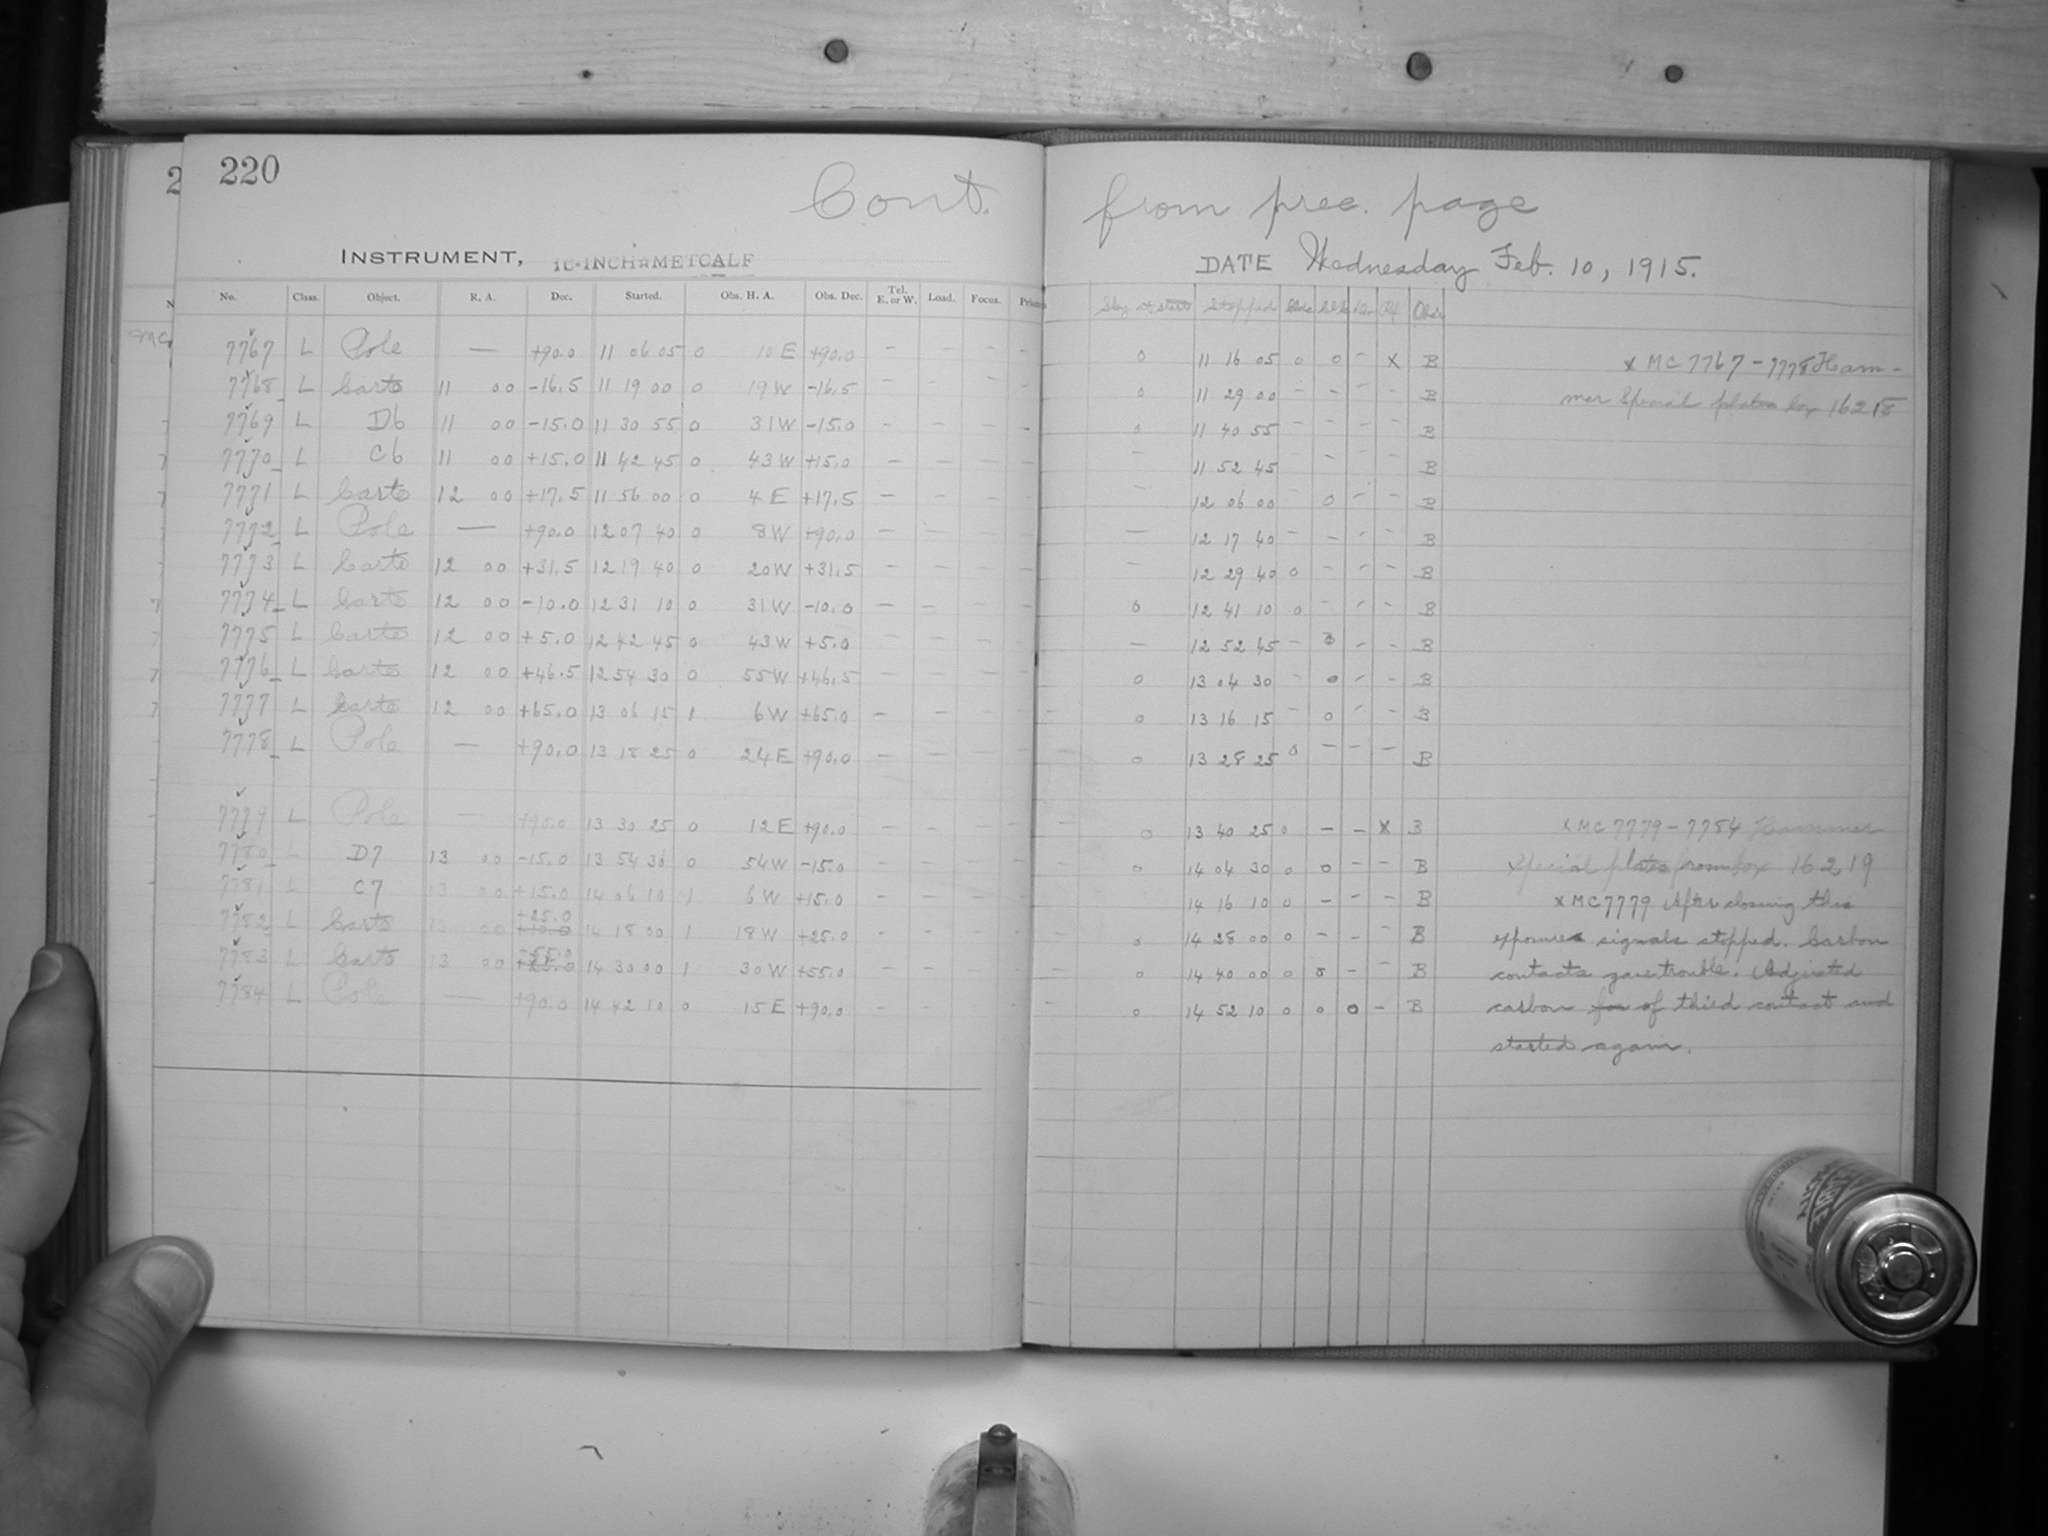 220
2
Cont. from prec. page
INSTRUMENT, 16-INCH METCALF DATE Wednesday Feb. 10, 1915.
No. Class. Object. R. A. Dec. Started. Obs. H. A. Obs. Dec. Tel. E. or W. Load. Focus. Stopped Obsr
MC 7767 L Pole — +90.0 11 06 05 0 10 E +90.0 – – – – 0 11 16 05 0 0 – X B x MC 7767 – 7778 Ham-
7768 L Carte 11 00 -16.5 11 19 00 0 19 W -16.5 – – – – 0 11 29 00 – – – – B mer Special plates box 16218
7769 L D6 11 00 -15.0 11 30 55 0 31 W -15.0 – – – – 0 11 40 55 – – – – B
7770 L C6 11 00 +15.0 11 42 45 0 43 W +15.0 – – – – – 11 52 45 – – – – B
7771 L Carte 12 00 +17.5 11 56 00 0 4 E +17.5 – – – – – 12 06 00 – 0 – – B
7772 L Pole — +90.0 12 07 40 0 8 W +90.0 – – – – — 12 17 40 – – – – B
7773 L Carte 12 00 +31.5 12 19 40 0 20 W +31.5 – – – – – 12 29 40 0 – – – B
7774 L Carte 12 00 -10.0 12 31 10 0 31 W -10.0 – – – – 0 12 41 10 0 – – – B
7775 L Carte 12 00 +5.0 12 42 45 0 43 W +5.0 – – – – — 12 52 45 – 0 – – B
7776 L Carte 12 00 +46.5 12 54 30 0 55 W +46.5 – – – – 0 13 04 30 – 0 – – B
7777 L Carte 12 00 +65.0 13 06 15 1 6 W +65.0 – – – – 0 13 16 15 – 0 – – B
7778 L Pole — +90.0 13 18 25 0 24 E +90.0 – – – – 0 13 28 25 0 – – – B
7779 L Pole — +90.0 13 30 25 0 12 E +90.0 – – – – 0 13 40 25 0 – – X B x MC 7779 – 7784 Hammer
7780 L D7 13 00 -15.0 13 54 30 0 54 W -15.0 – – – – 0 14 04 30 0 0 – – B Special plates from box 16219
7781 L C7 13 00 +15.0 14 06 10 1 6 W +15.0 – – – – 14 16 10 0 – – – B x MC 7779 After closing this
7782 L Carte 13 00 +25.0 14 18 00 1 18 W +25.0 – – – – 0 14 28 00 0 – – – B exposure signals stopped. Carbon
7783 L Carte 13 00 +55.0 14 30 00 1 30 W +55.0 – – – – 0 14 40 00 0 0 – – B contacts gave trouble. Adjusted
7784 L Pole — +90.0 14 42 10 0 15 E +90.0 – – – – 0 14 52 10 0 0 0 – B carbon for of third contact and
started again.